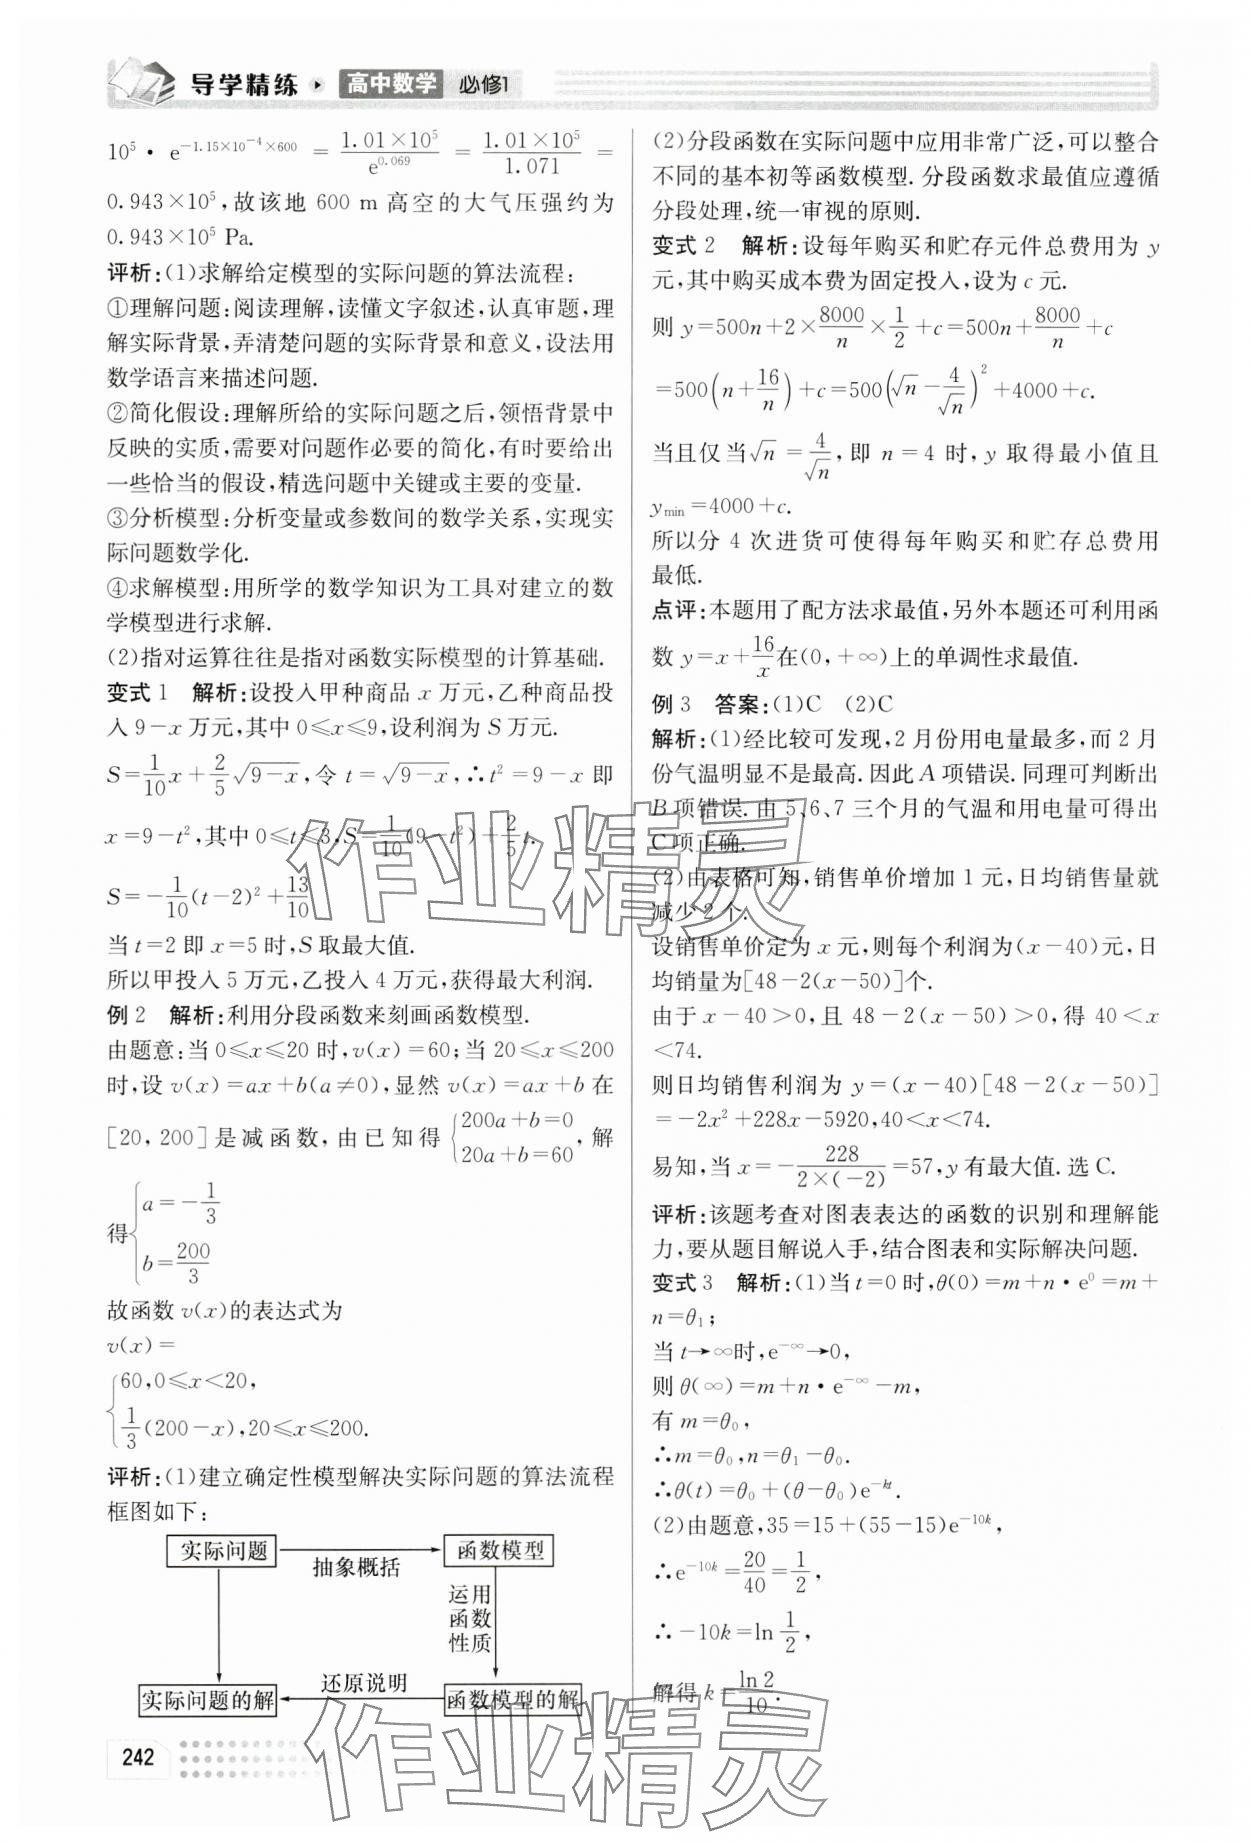 导学精练 高中数学 必修1
10⁵·e^{-1.15×10⁻⁴×600} = 1.01×10⁵/e^{0.069} = 1.01×10⁵/1.071 =
0.943×10⁵,故该地 600 m 高空的大气压强约为
0.943×10⁵ Pa.
评析:(1)求解给定模型的实际问题的算法流程:
①理解问题:阅读理解,读懂文字叙述,认真审题,理
解实际背景,弄清楚问题的实际背景和意义,设法用
数学语言来描述问题.
②简化假设:理解所给的实际问题之后,领悟背景中
反映的实质,需要对问题作必要的简化,有时要给出
一些恰当的假设,精选问题中关键或主要的变量.
③分析模型:分析变量或参数间的数学关系,实现实
际问题数学化.
④求解模型:用所学的数学知识为工具对建立的数
学模型进行求解.
(2)指对运算往往是指对函数实际模型的计算基础.
变式 1 解析:设投入甲种商品 x 万元,乙种商品投
入 9-x 万元,其中 0≤x≤9,设利润为 S 万元.
S=1/10 x+2/5 √(9-x),令 t=√(9-x),∴t²=9-x 即
x=9-t²,其中 0≤t≤3,S=1/10(9-t²)+2/5 t.
S=-1/10(t-2)²+13/10
当 t=2 即 x=5 时,S 取最大值.
所以甲投入 5 万元,乙投入 4 万元,获得最大利润.
例 2 解析:利用分段函数来刻画函数模型.
由题意:当 0≤x≤20 时,v(x)=60;当 20≤x≤200
时,设 v(x)=ax+b(a≠0),显然 v(x)=ax+b 在
[20,200]是减函数,由已知得{200a+b=0
20a+b=60,解
得{a=-1/3
b=200/3
故函数 v(x)的表达式为
v(x)=
{60,0≤x<20,
1/3(200-x),20≤x≤200.
评析:(1)建立确定性模型解决实际问题的算法流程
框图如下:
实际问题 抽象概括 函数模型
运用
函数
性质
实际问题的解 还原说明 函数模型的解
242
(2)分段函数在实际问题中应用非常广泛,可以整合
不同的基本初等函数模型.分段函数求最值应遵循
分段处理,统一审视的原则.
变式 2 解析:设每年购买和贮存元件总费用为 y
元,其中购买成本费为固定投入,设为 c 元.
则 y=500n+2×8000/n×1/2+c=500n+8000/n+c
=500(n+16/n)+c=500(√n-4/√n)²+4000+c.
当且仅当√n=4/√n,即 n=4 时,y 取得最小值且
y_min=4000+c.
所以分 4 次进货可使得每年购买和贮存总费用
最低.
点评:本题用了配方法求最值,另外本题还可利用函
数 y=x+16/x在(0,+∞)上的单调性求最值.
例 3 答案:(1)C (2)C
解析:(1)经比较可发现,2 月份用电量最多,而 2 月
份气温明显不是最高.因此 A 项错误.同理可判断出
B 项错误.由 5、6、7 三个月的气温和用电量可得出
C 项正确.
(2)由表格可知,销售单价增加 1 元,日均销售量就
减少 2 个.
设销售单价定为 x 元,则每个利润为(x-40)元,日
均销量为[48-2(x-50)]个.
由于 x-40>0,且 48-2(x-50)>0,得 40<x
<74.
则日均销售利润为 y=(x-40)[48-2(x-50)]
=-2x²+228x-5920,40<x<74.
易知,当 x=-228/(2×(-2))=57,y 有最大值.选 C.
评析:该题考查对图表表达的函数的识别和理解能
力,要从题目解说入手,结合图表和实际解决问题.
变式 3 解析:(1)当 t=0 时,θ(0)=m+n·e⁰=m+
n=θ₁;
当 t→∞时,e^{-∞}→0,
则 θ(∞)=m+n·e^{-∞}-m,
有 m=θ₀,
∴m=θ₀,n=θ₁-θ₀.
∴θ(t)=θ₀+(θ-θ₀)e^{-kt}.
(2)由题意,35=15+(55-15)e^{-10k},
∴e^{-10k}=20/40=1/2,
∴-10k=ln 1/2,
解得 k=ln 2/10.
作业精灵
作业精灵